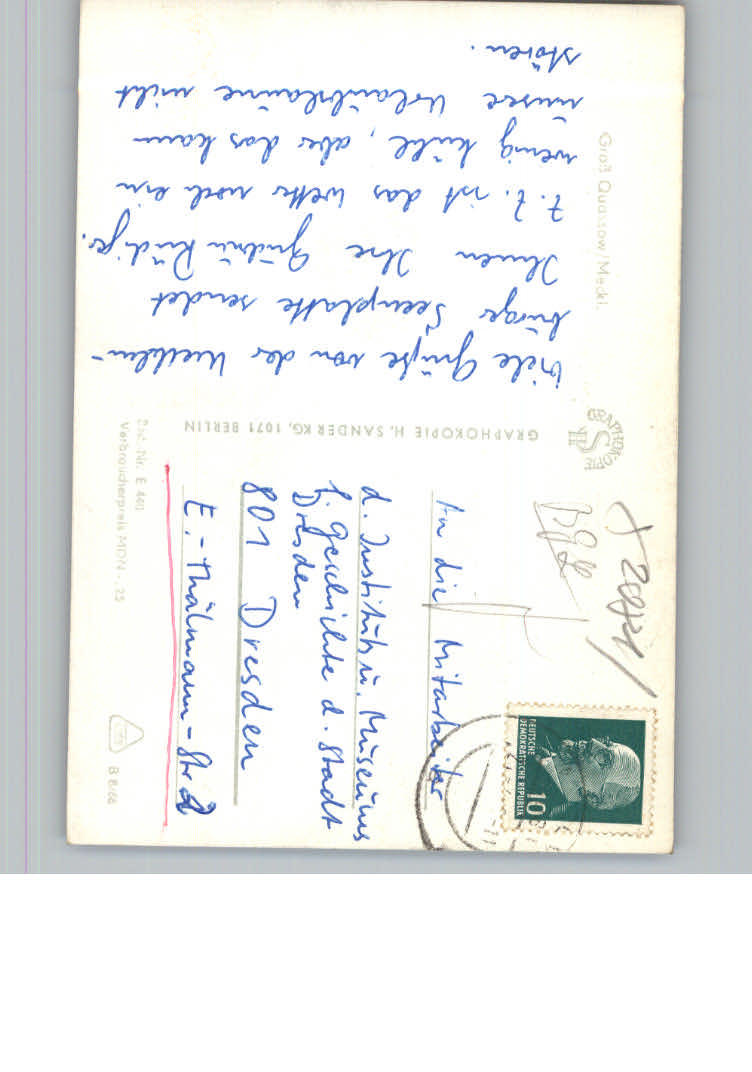 Groß Quassow/Meckl.
Viele Grüße von der Mecklen-
burger Seenplatte sendet
Ihnen Ihre Gudrun Rüdiger.
Z. Z. ist das Wetter noch ein
wenig kühl, aber das kann
unsere Urlaubslaune nicht
stören.
GRAPHOKOPIE H. SANDER KG, 1071 BERLIN
GRAPHOKOPIE
HS
An die Mitarbeiter
d. Instituts u. Museums
f. Geschichte d. Stadt
Dresden
801 Dresden
E.-Thälmann-Str 2
DEUTSCHE
DEMOKRATISCHE REPUBLIK
10
Best.-Nr. E 440
Verbraucherpreis MDN -,25
B 8/66